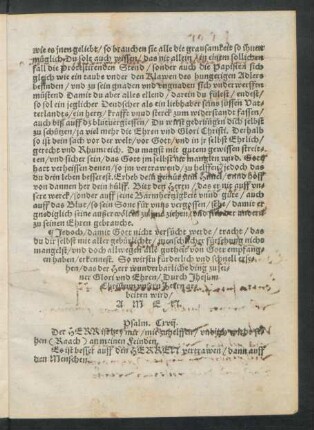 wie es jnen geliebt / so brauchen sie alle die grausamkeit so jhnen
müglich. Du solt auch wissen / das nit allein / in einem sollichen
fall die Protestierenden Stend / sonder auch die Papisten sich
gleich wie ein taube vnder den Klawen des hungerigen Adlers
befinden / vnd zu sein gnaden vnd vngnaden sich vnderwerffen
müsten. Damit du aber alles ellend / darein du fülest / endest /
so sol ein jeglicher Deudscher als ein liebhaber seins süssen Vat-
terlandes / ein hertz / krafft vnnd sterck zum widerstand fassen /
auch biß auff das blutuergiessen / Du wirst gedrungen dich selbst
zu schützen / ja viel mehr die Ehren vnd Glori Christi. Derhalb
so ist dein sach vor der welt / vor Gott / vnd in jr selbst Ehrlich /
gerecht vnd Rhumreich. Du magst mit gutem gewissen streit-
ten / vnd sicher sein / das Gott im selbst nit manglen wird. Gott
hatt verheissen denen / so jm vertrawen / zu helffen / jedoch das
du dein leben besserest. Erheb dein gemüt gen Himel / vnnd hoff
von dannen her dein hülff. Bitt den Herrn / das er nit auff vn-
sere werck / sonder auff seine Barmhertzigkeit vnnd güte / auch
auff das Blut / so sein Sone für vns vergossen / sehe / damit er
gnediglich seine ausserwölten zu jm ziehen / vnd
seinen Ehren gebrauche.
Jedoch / damit Gott nicht versücht werde / tracht / das
du dir selbst mit aller gebürlicher / fürsehung nicht
mangelst / vnd doch allwegen alle gutheit von Gott empfang-
en haben / erkennest. So wirstu fürderlich vnd schnell erse-
hen / das der Herr wunderbarliche ding zu sei-
ner Glori vnd Ehren / Durch Jhesum
Christum vnsern
beiten wird /
A M E N.
Psalm. Cxvij.
Der HERR ist mit mir
(Raach) an meinen Feinden.
Es ist besser auff den HERREN vertrawen / dann auff
den Menschen.